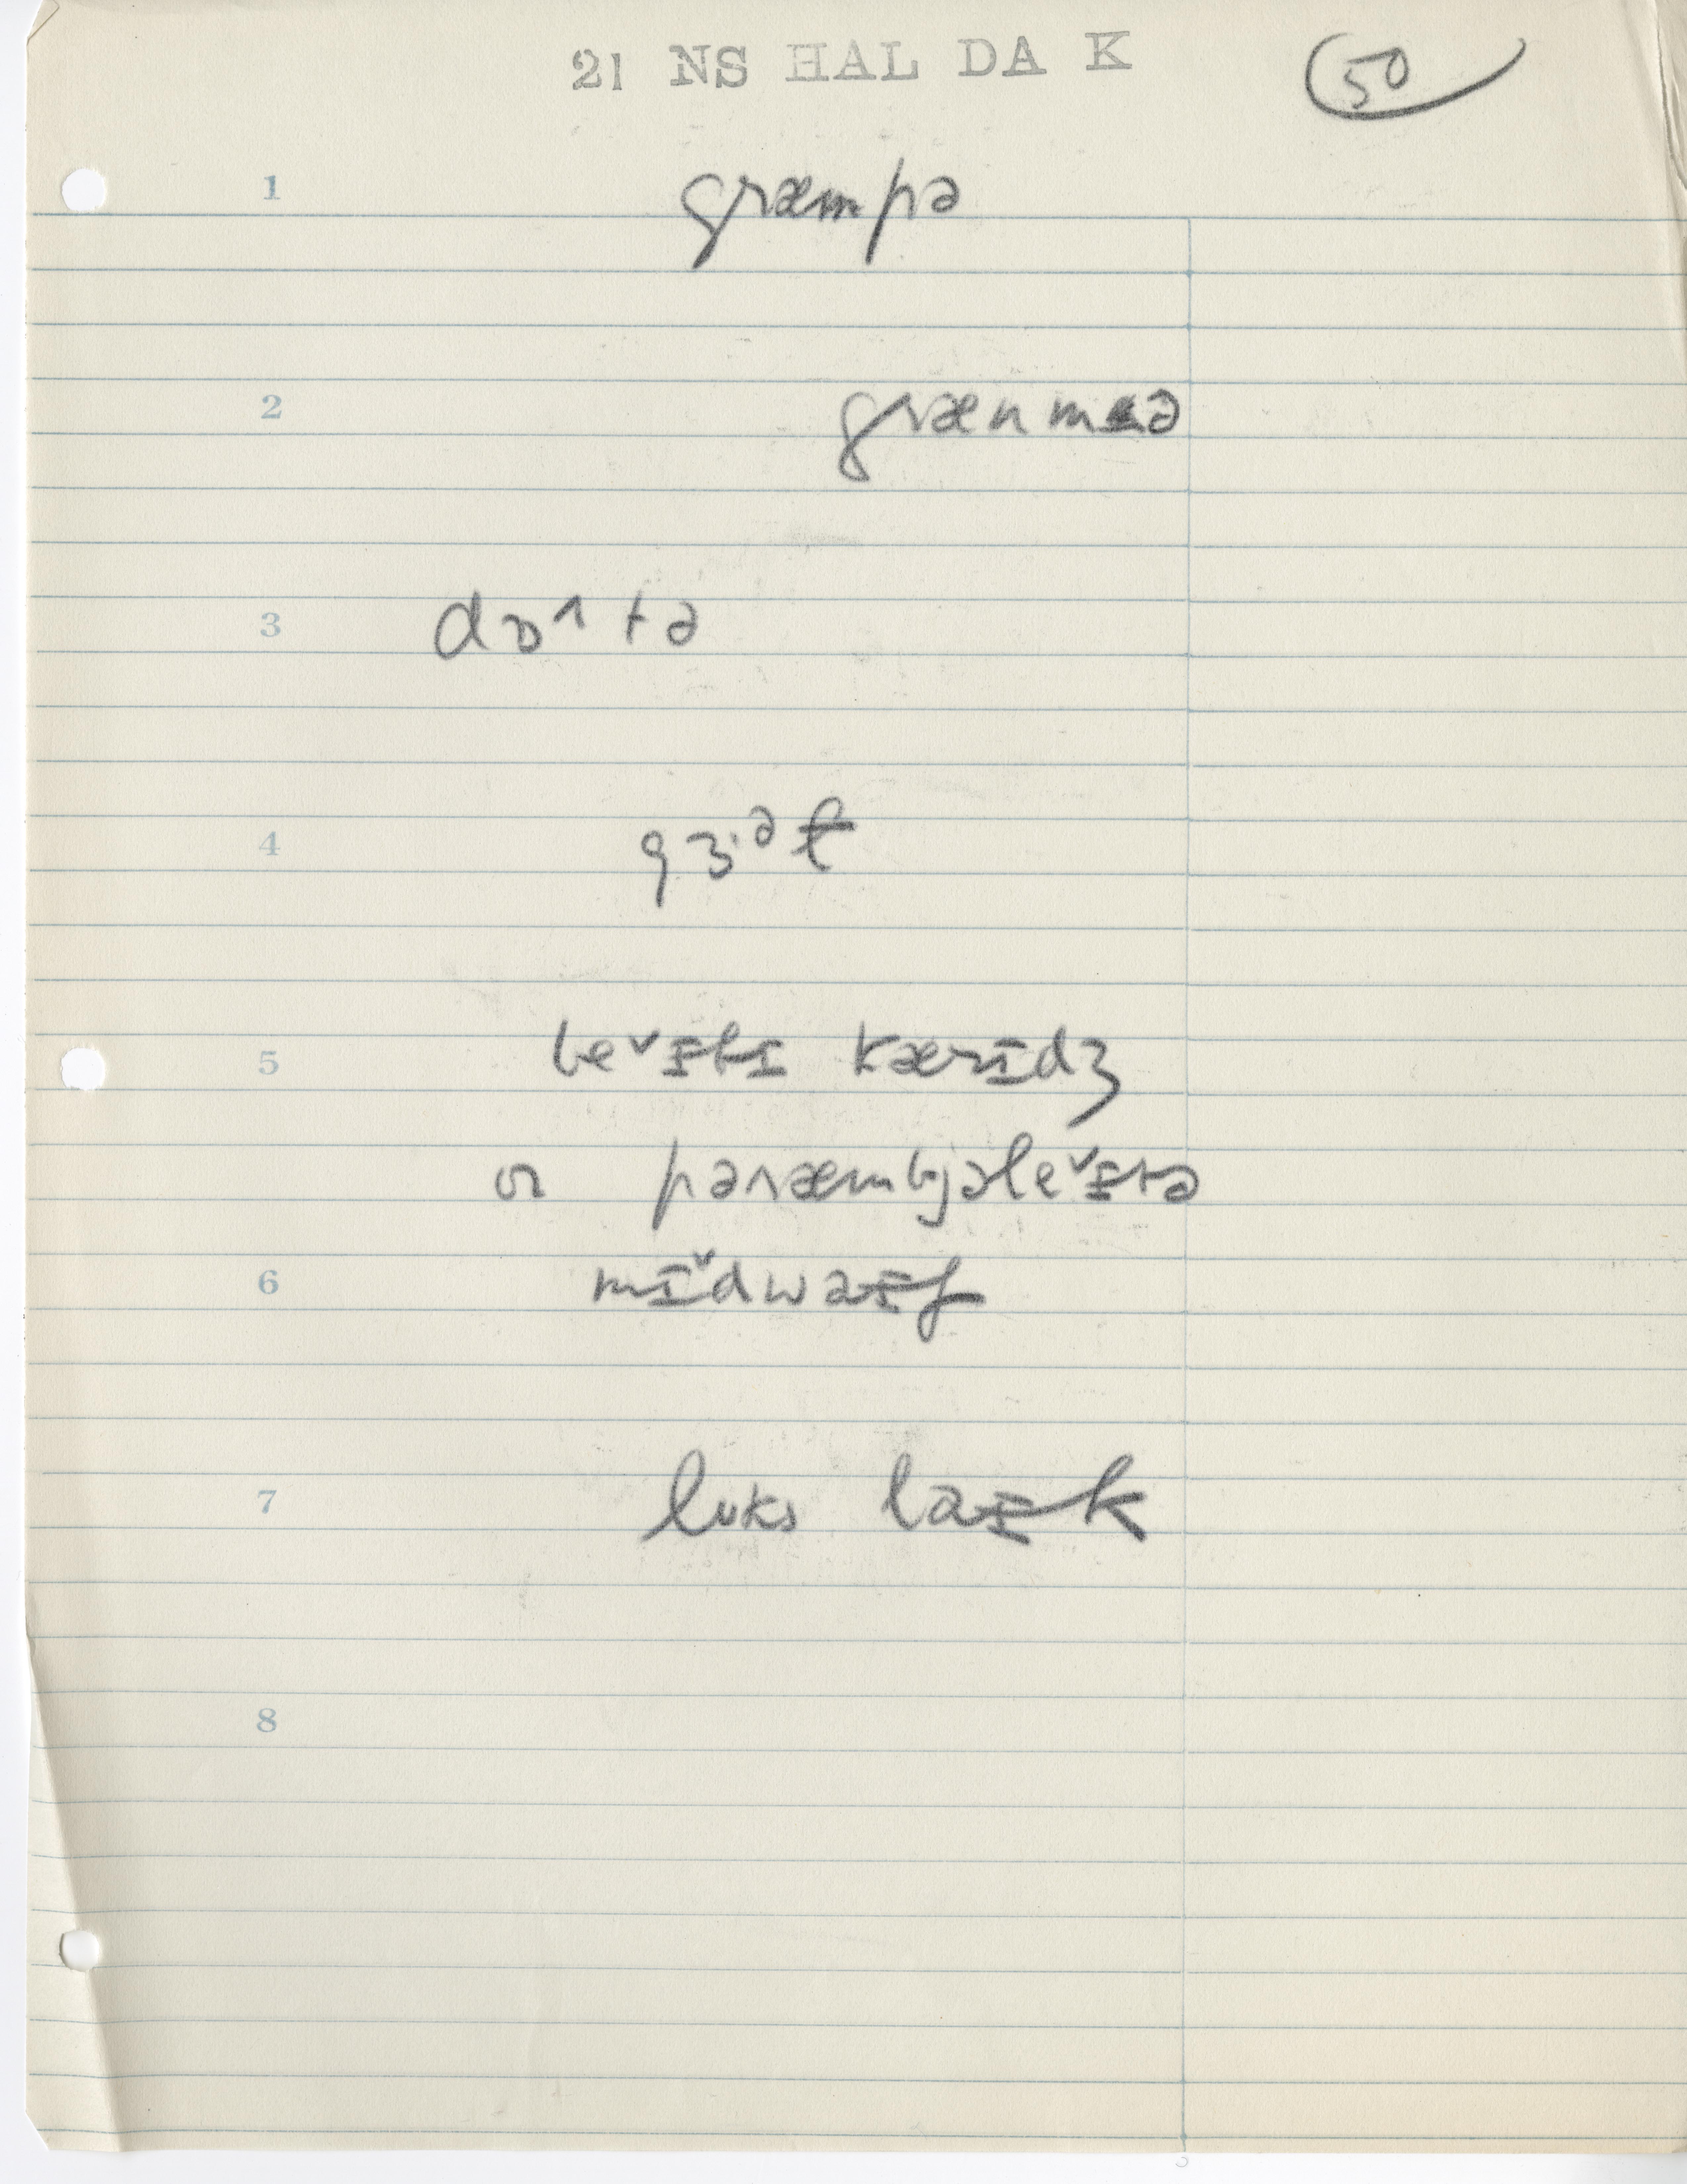 21 NS HAL DA K
50
1 græmpə
2 grænmə
3 dɒ˄tə
4 gɜ·ᵊɫ
5 be˅ɪbɪ kærɪdʒ
or pəræmbjəle˅ɪtə
6 mɪ˅dwaɪf
7 lʊks laɪk
8